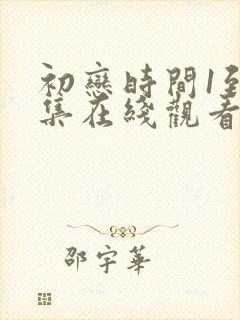 初戀時間1至
集在綫觀看
邵宇華